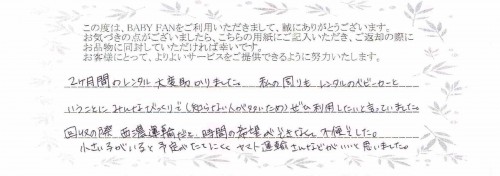 この度は、BABY FANをご利用いただきまして、誠にありがとうございます。
お気づきの点がございましたら、こちらの用紙にご記入いただき、ご返却の際に
お品物に同封していただければ幸いです。
お客様にとって、よりよいサービスをご提供できるように努力いたします。
2ヶ月間のレンタル 大変助かりました。 私の周りも レンタルのベビーカーと
いうことに みんなびっくりで(知らない人が多いため)ぜひ利用したいと言っていました。
回収の際 西濃運輸だと、時間の希望ができなくて不便でした。
小さい子がいると 予定がたてにくく ヤマト運輸さんなどがいいと思いました。